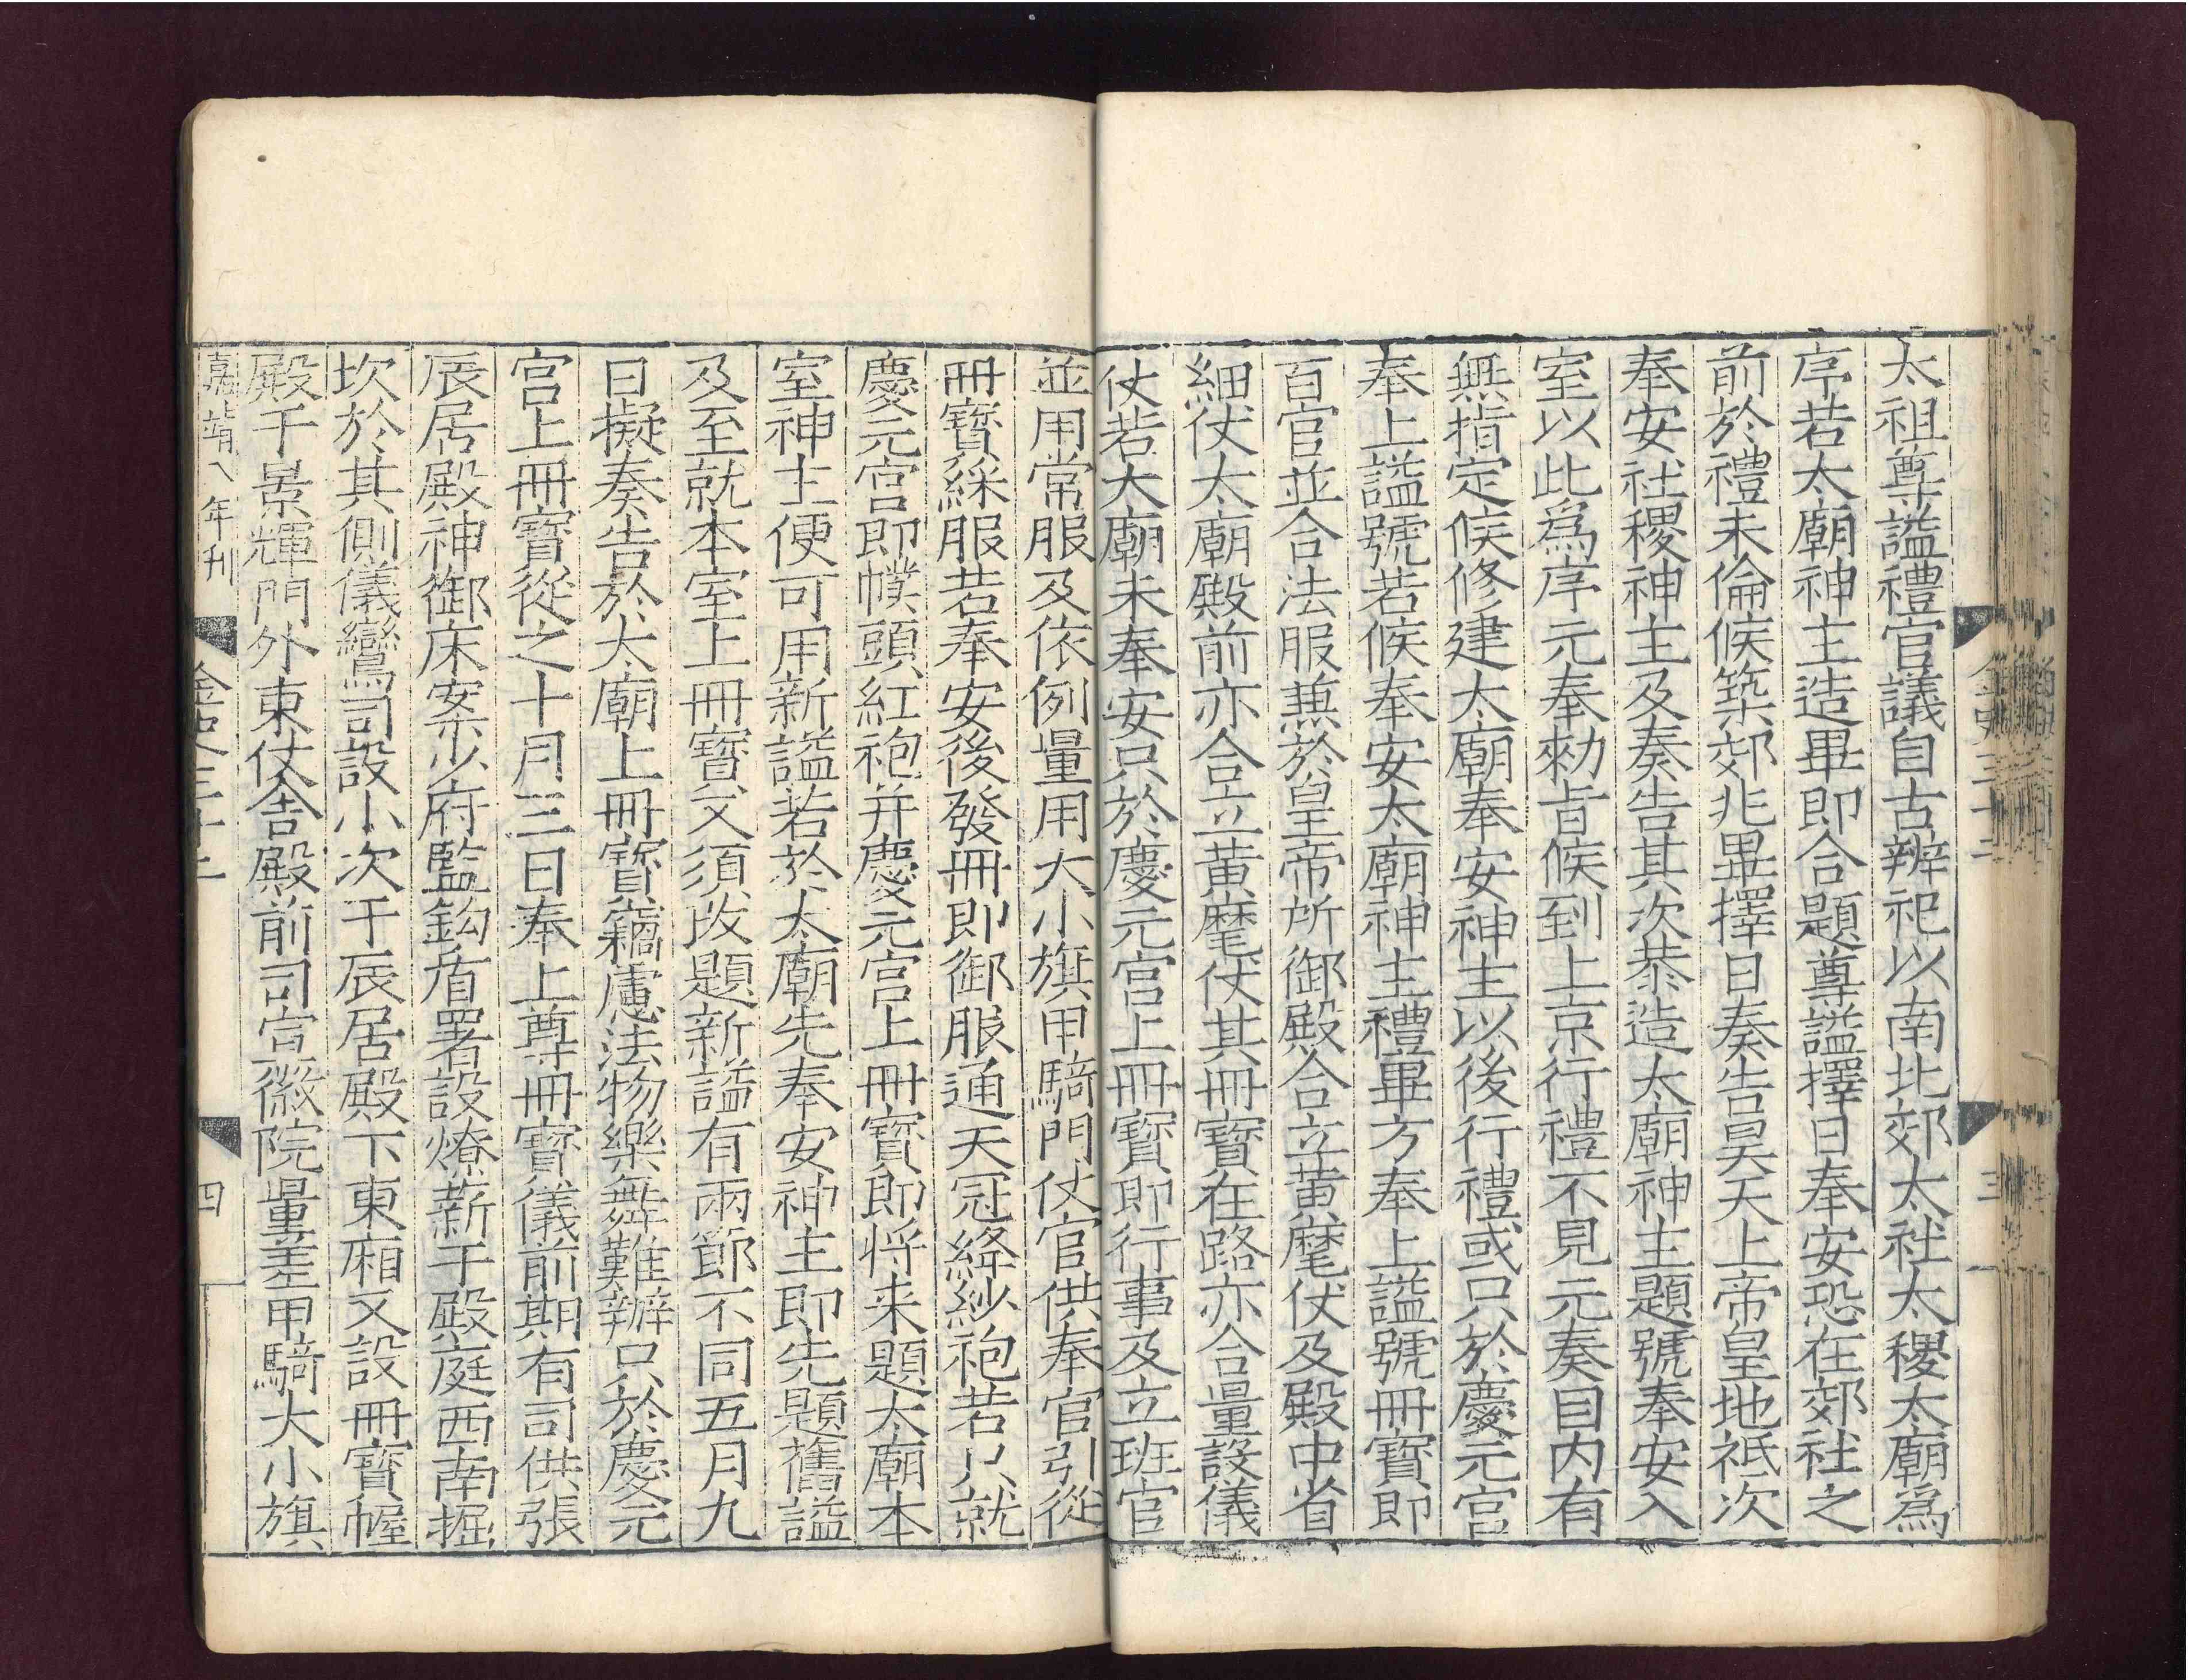 太祖尊謚禮官議自古辨祀以南北郊太社太稷太廟爲
序若太廟神主造畢即合題尊謚擇日奉安恐在郊社之
前於禮未倫候築郊兆畢擇日奏告昊天上帝皇地祇次
奉安社稷神主及奏告其次恭造太廟神主題號奉安入
室以此爲序元奉勑旨候到上京行禮不見元奏目内有
無指定候修建太廟奉安神主以後行禮或只於慶元宫
奉上謚號若候奉安太廟神主禮畢方奉上謚號冊寳即
百官並合法服兼於皇帝所御殿合立黄麾仗及殿中省
細仗太廟殿前亦合立黄麾仗其冊寳在路亦合量設儀
仗若太廟未奉安只於慶元宫上冊寳即行事及立班官
並用常服及依例量用大小旗甲騎門仗官供奉官引從
冊寳綵服若奉安後發冊即御服通天冠絳紗袍若只就
慶元宫即幞頭紅袍并慶元宫上冊寳即将来題太廟本
室神主便可用新謚若於太廟先奉安神主即先題舊謚
及至就本室上冊寳又須改題新謚有兩節不同五月九
日擬奏告於太廟上冊寳竊慮法物樂舞難辦只於慶元
宫上冊寳從之十月三日奉上尊冊寳儀前期有司供張
辰居殿神御床案少府監鈎盾署設燎薪于殿庭西南掘
坎於其側儀鸞司設小次于辰居殿下東廂又設冊寳幄
殿于景輝門外東仗舎殿前司宣徽院量差甲騎大小旗
嘉靖八年刊
金史三十二
四